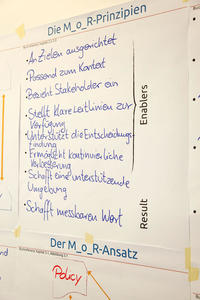 Die M_o_R-Prinzipien
• An Zielen ausgerichtet
• Passend zum Kontext
• Bezieht Stakeholder ein
• Stellt klare Leitlinien zur
Verfügung
• Unterstützt die Entscheidungs-
findung
• Ermöglicht kontinuierliche
Verbesserung
• Schafft eine unterstützende
Umgebung
• Schafft messbaren Wert
Enablers
Result
Der M_o_R-Ansatz
Policy